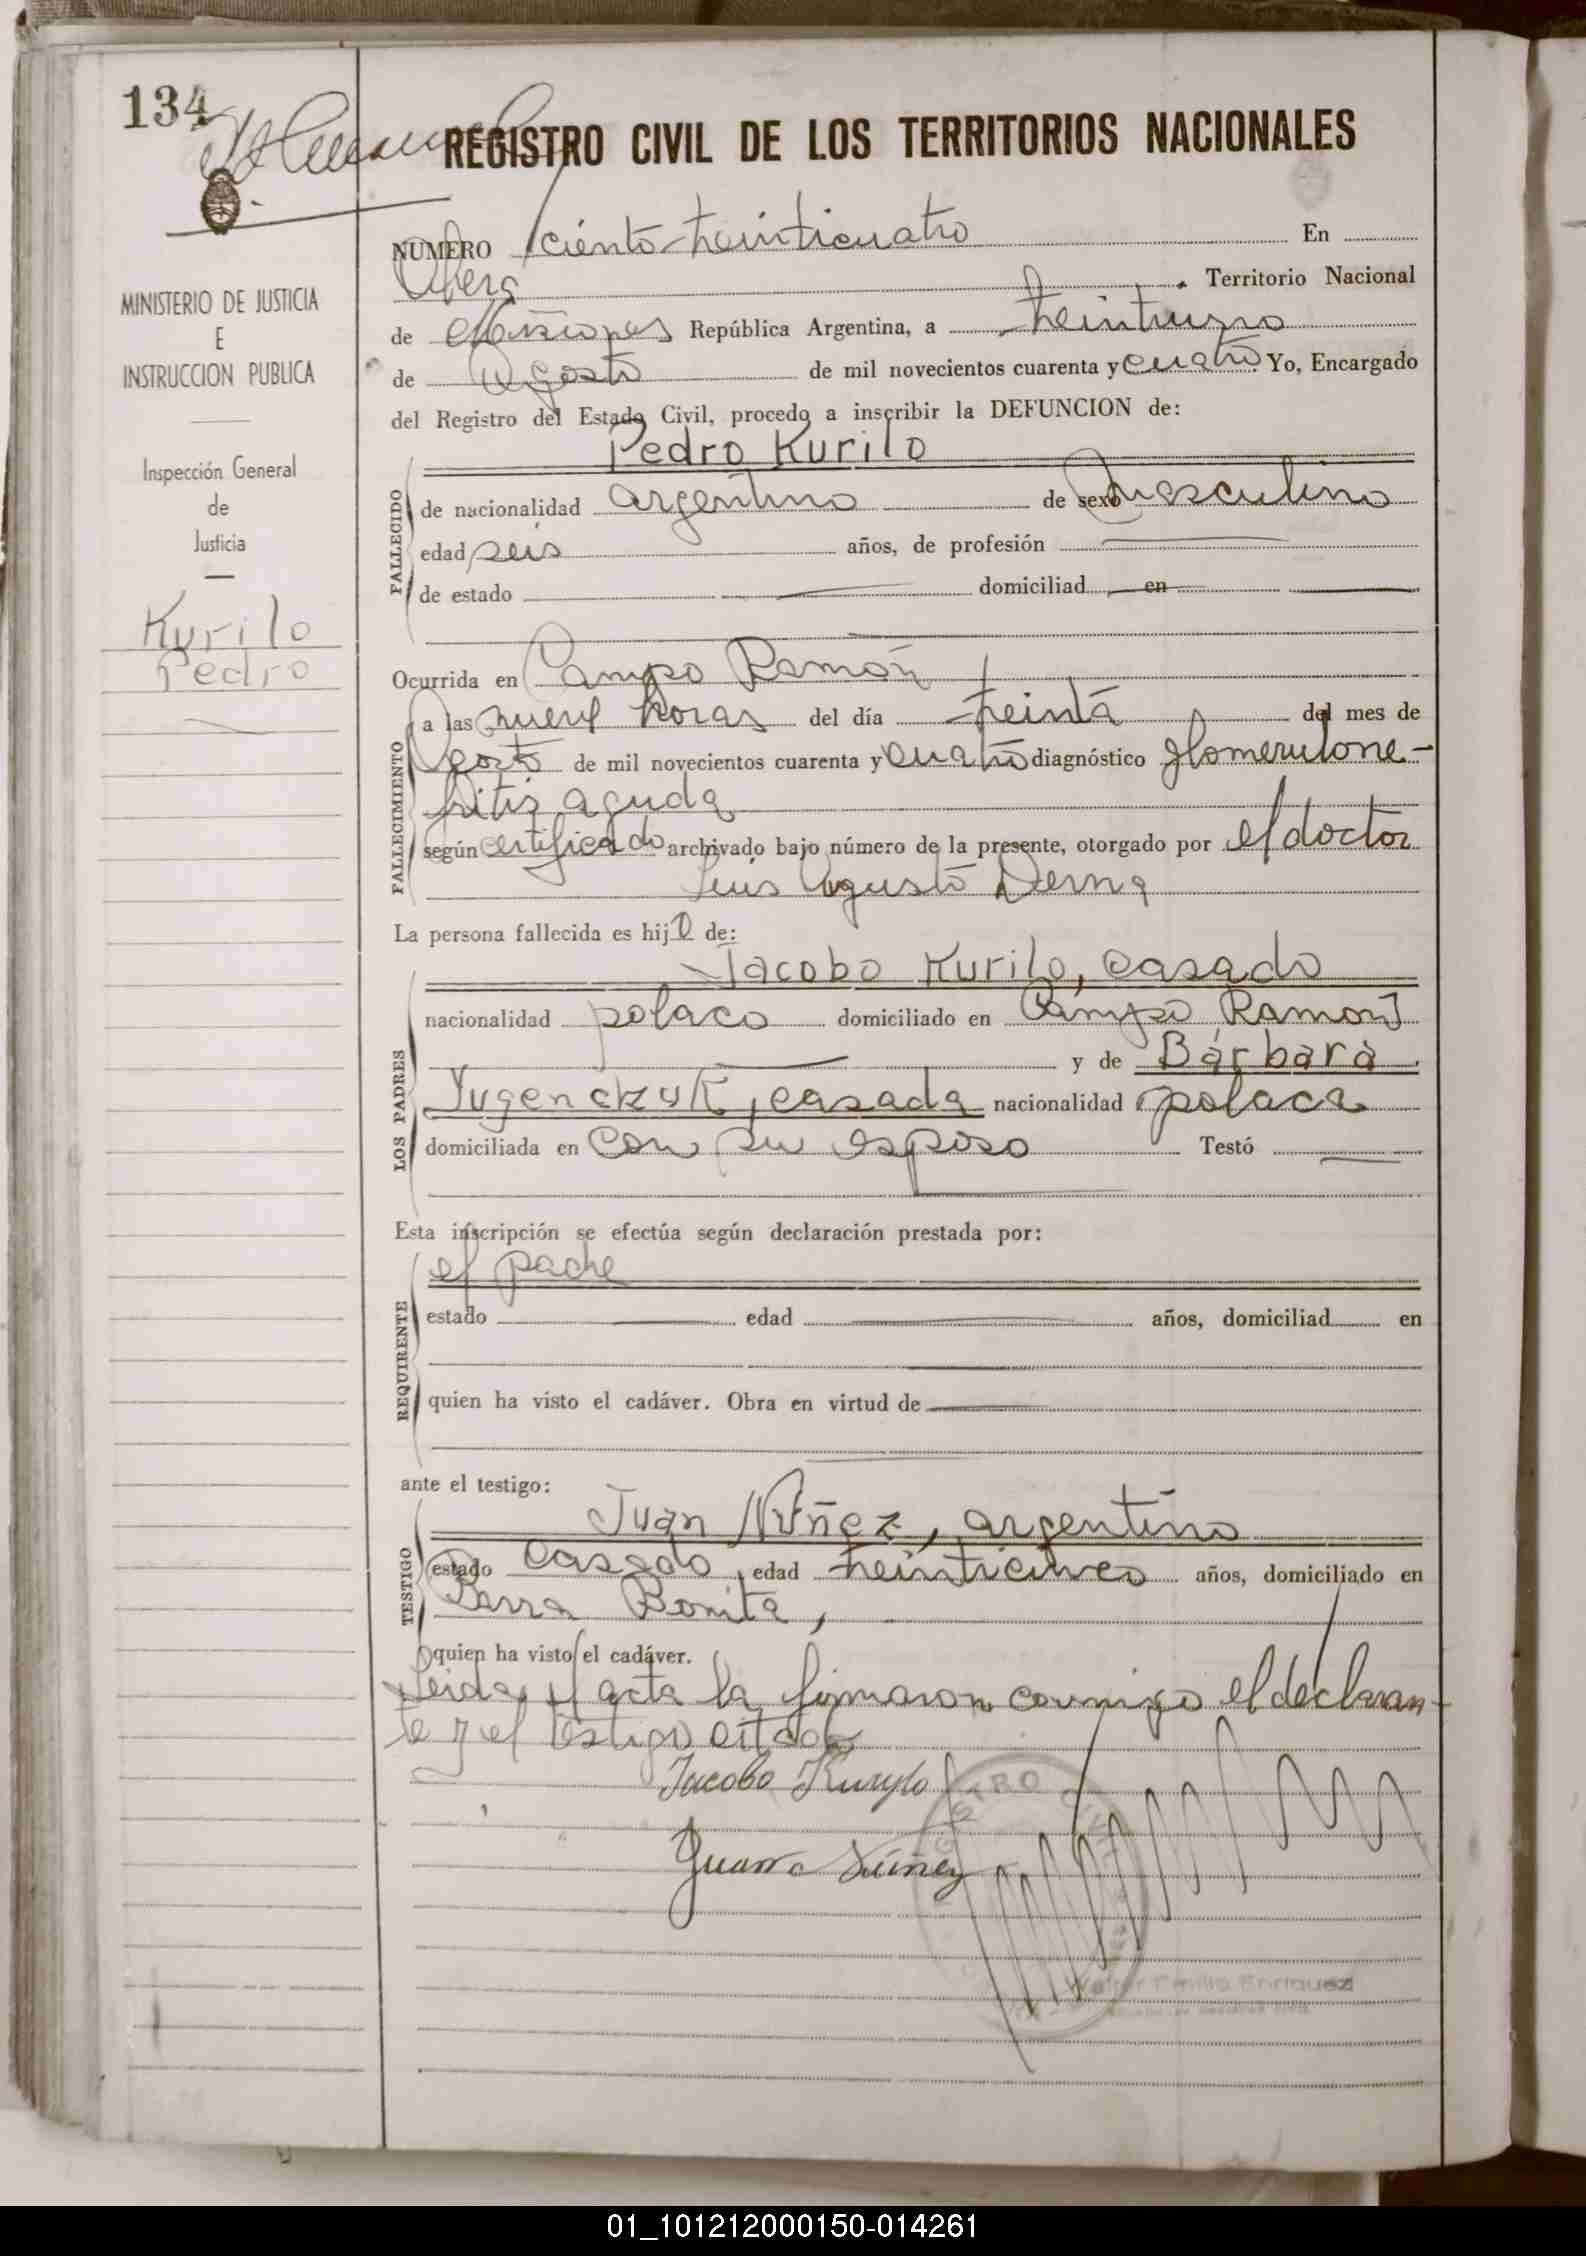 134
REGISTRO CIVIL DE LOS TERRITORIOS NACIONALES
MINISTERIO DE JUSTICIA
E
INSTRUCCION PUBLICA
Inspección General
de
Justicia
Kurilo
Pedro
NUMERO ciento treinticuatro En
Oberá Territorio Nacional
de Misiones República Argentina, a treintiuno
de Agosto de mil novecientos cuarenta y cuatro Yo, Encargado
del Registro del Estado Civil, procedo a inscribir la DEFUNCION de:
Pedro Kurilo
FALLECIDO
de nacionalidad argentino de sexo masculino
edad seis años, de profesión
de estado domiciliad en
Ocurrida en Campo Ramón
FALLECIMIENTO
a las nueve horas del día treinta del mes de
Agosto de mil novecientos cuarenta y cuatro diagnóstico glomerulone-
fritis aguda
según certificado archivado bajo número de la presente, otorgado por el doctor
Luis Agusto Derna
La persona fallecida es hijo de:
Jacobo Kurilo, casado
LOS PADRES
nacionalidad polaco domiciliado en Campo Ramón
y de Bárbara
Yugenckuk, casada nacionalidad polaca
domiciliada en con su esposo Testó
Esta inscripción se efectúa según declaración prestada por:
el padre
REQUIRENTE
estado edad años, domiciliad en
quien ha visto el cadáver. Obra en virtud de
ante el testigo:
Juan Núñez, argentino
TESTIGO
estado casado, edad treinticinco años, domiciliado en
Barra Bonita,
quien ha visto el cadáver.
Leida el acta la firmaron conmigo el declaran-
te y el testigo citado
Jacobo Kurylo
Juan Núñez
Walter Emilio Enriquez
01_101212000150-014261